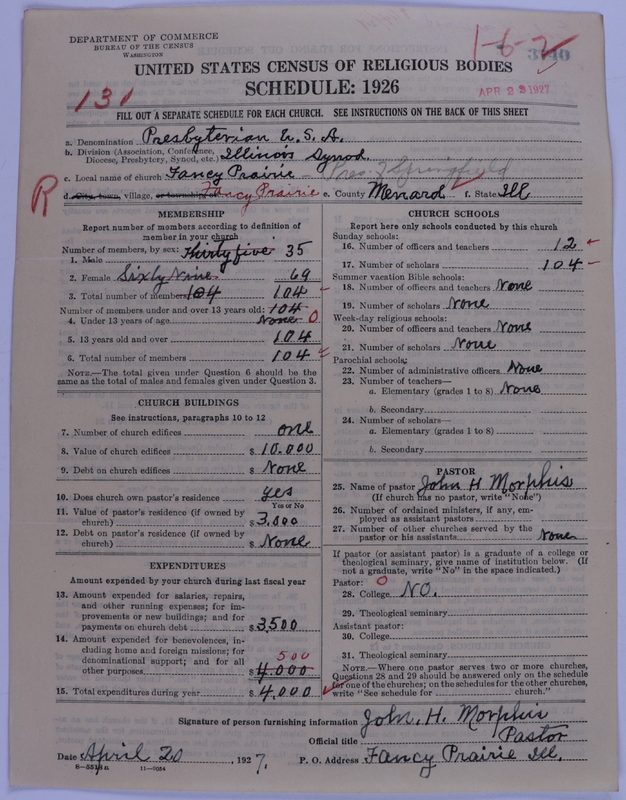 DEPARTMENT OF COMMERCE
BUREAU OF THE CENSUS
WASHINGTON
1-6-2
3740
UNITED STATES CENSUS OF RELIGIOUS BODIES
SCHEDULE: 1926
APR 23 1927
131
FILL OUT A SEPARATE SCHEDULE FOR EACH CHURCH. SEE INSTRUCTIONS ON THE BACK OF THIS SHEET
a. Denomination Presbyterian U.S.A.
b. Division (Association, Conference, Diocese, Presbytery, Synod, etc.) Illinois Synod.
c. Local name of church Fancy Prairie - Pres. of Springfield
R
d. City, town, village, or township of Fancy Prairie e. County Menard f. State Ill
MEMBERSHIP
Report number of members according to definition of
member in your church
Number of members, by sex:
1. Male Thirty five 35
2. Female Sixty Nine 69
3. Total number of members 104 104
Number of members under and over 13 years old: 104
4. Under 13 years of age None 0
5. 13 years old and over 104
6. Total number of members 104
NOTE.—The total given under Question 6 should be the
same as the total of males and females given under Question 3.
CHURCH BUILDINGS
See instructions, paragraphs 10 to 12
7. Number of church edifices one
8. Value of church edifices $ 10.000
9. Debt on church edifices $ None
10. Does church own pastor's residence yes
Yes or No
11. Value of pastor's residence (if owned by
church) $ 3,000
12. Debt on pastor's residence (if owned by
church) $ None
EXPENDITURES
Amount expended by your church during last fiscal year
13. Amount expended for salaries, repairs,
and other running expenses; for im-
provements or new buildings; and for
payments on church debt $ 3,500
14. Amount expended for benevolences, in-
cluding home and foreign missions; for
denominational support; and for all 500
other purposes $ 4,000
15. Total expenditures during year $ 4,000
CHURCH SCHOOLS
Report here only schools conducted by this church
Sunday schools:
16. Number of officers and teachers 12
17. Number of scholars 104
Summer vacation Bible schools:
18. Number of officers and teachers None
19. Number of scholars None
Week-day religious schools:
20. Number of officers and teachers None
21. Number of scholars None
Parochial schools:
22. Number of administrative officers None
23. Number of teachers—
a. Elementary (grades 1 to 8) None
b. Secondary
24. Number of scholars—
a. Elementary (grades 1 to 8)
b. Secondary
PASTOR
25. Name of pastor John H Morphis
(If church has no pastor, write "None")
26. Number of ordained ministers, if any, em-
ployed as assistant pastors
27. Number of other churches served by the
pastor or his assistants None
If pastor (or assistant pastor) is a graduate of a college or
theological seminary, give name of institution below. (If
not a graduate, write "No" in the space indicated.)
Pastor: 0
28. College NO.
29. Theological seminary
Assistant pastor:
30. College
31. Theological seminary
NOTE.—Where one pastor serves two or more churches,
Questions 28 and 29 should be answered only on the schedule
for one of the churches; on the schedules for the other churches,
write "See schedule for church."
Signature of person furnishing information John. H. Morphis
Official title Pastor
Date April 20, 1927. P. O. Address Fancy Prairie Ill.
8-5518a 11-1054